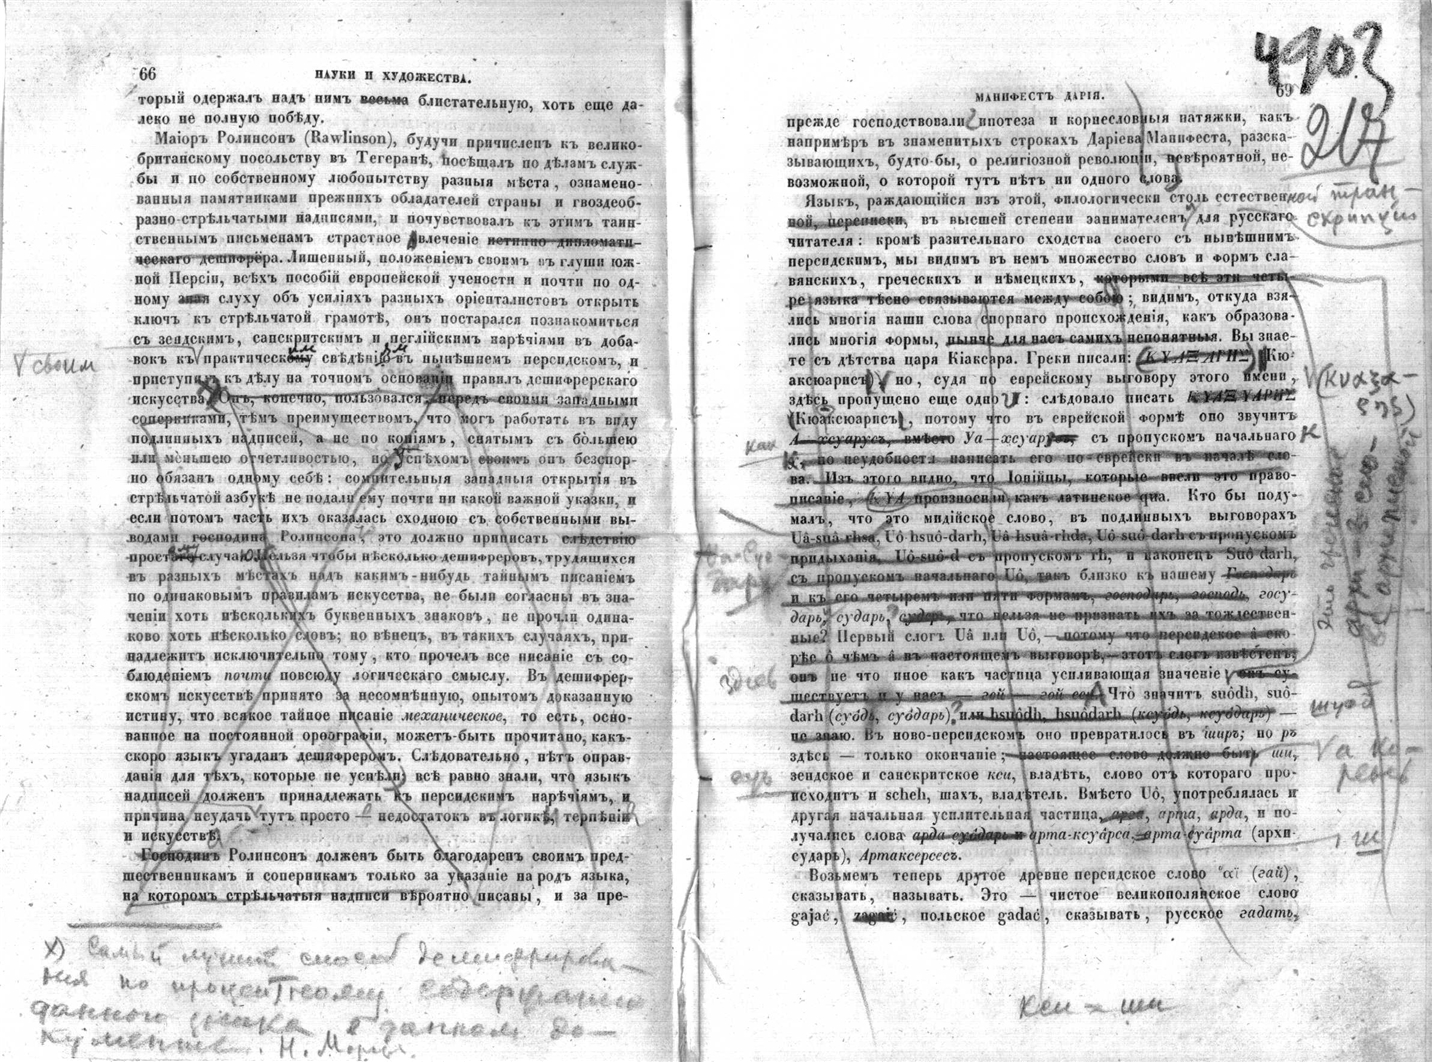 66
НАУКИ И ХУДОЖЕСТВА.
торый одержалъ надъ нимъ весьма блистательную, хоть еще да-
леко не полную побѣду.
Маіоръ Ролинсонъ (Rawlinson), будучи причисленъ къ велико-
британскому посольству въ Тегеранѣ, посѣщалъ по дѣламъ служ-
бы и по собственному любопытству разныя мѣста, ознамено-
ванныя памятниками прежнихъ обладателей страны и гвоздеоб-
разно-стрѣльчатыми надписями, и почувствовалъ къ этимъ таин-
ственнымъ письменамъ страстное влеченіе истинно дипломати-
ческаго дешифрёра. Лишенный, положеніемъ своимъ въ глуши юж-
ной Персіи, всѣхъ пособій европейской учености и почти по од-
ному слуху объ усиліяхъ разныхъ оріенталистовъ открыть
ключъ къ стрѣльчатой грамотѣ, онъ постарался познакомиться
съ зендскимъ, санскритскимъ и пеглійскимъ нарѣчіями въ доба-
вокъ къ практическому свѣдѣнію въ нынѣшнемъ персидскомъ, и
V своим
приступилъ къ дѣлу на точномъ основаніи правилъ дешифрерскаго
искусства. Онъ, конечно, пользовался передъ своими западными
соперниками, тѣмъ преимуществомъ, что могъ работать въ виду
подлинныхъ надписей, а не по копіямъ, снятымъ съ бо́льшею
или ме́ньшею отчетливостью, но успѣхомъ своимъ онъ безспор-
но обязанъ одному себѣ: сомнительныя западныя открытія въ
стрѣльчатой азбукѣ не подали ему почти ни какой важной указки, и
если потомъ часть ихъ оказалась сходною съ собственными вы-
водами господина Ролинсона, это должно приписать слѣдствію
простаго случая. Нельзя чтобы нѣсколько дешифреровъ, трудящихся
въ разныхъ мѣстахъ надъ какимъ-нибудь тайнымъ писаніемъ
по одинаковымъ правиламъ искусства, не были согласны въ зна-
ченіи хоть нѣсколькихъ буквенныхъ знаковъ, не прочли одина-
ково хоть нѣсколько словъ; но вѣнецъ, въ такихъ случаяхъ, при-
надлежитъ исключительно тому, кто прочелъ все писаніе съ со-
блюденіемъ почти повсюду логическаго смыслу. Въ дешифрер-
скомъ искусствѣ принято за несомнѣнную, опытомъ доказанную
истину, что всякое тайное писаніе механическое, то есть, осно-
ванное на постоянной орѳографіи, можетъ-быть прочитано, какъ-
скоро языкъ угаданъ дешифреромъ. Слѣдовательно, нѣтъ оправ-
данія для тѣхъ, которые не успѣли: всѣ равно знали, что языкъ
надписей долженъ принадлежать къ персидскимъ нарѣчіямъ, и
причина неудачъ тутъ просто — недостатокъ въ логикѣ, терпѣніи
и искусствѣ.
Господинъ Ролинсонъ долженъ быть благодаренъ своимъ пред-
шественникамъ и соперникамъ только за указаніе на родъ языка,
на которомъ стрѣльчатыя надписи вѣроятно писаны, и за пре-
х) Самый лучший способ дешифрирова-
ния по процентному содержанию
данного знака в данном до-
кументе. Н. Мороз.
4903
217
69
МАНИФЕСТЪ ДАРІЯ.
прежде господствовали ипотеза и корнесловныя натяжки, какъ
напримѣръ въ знаменитыхъ строкахъ Даріева Манифеста, разска-
зывающихъ, будто-бы, о религіозной революціи, невѣроятной, не-
возможной, о которой тутъ нѣтъ ни одного слова.
Языкъ, раждающійся изъ этой, филологически столь естествен-
ной тран-
скрипции
ной, переписки, въ высшей степени занимателенъ для русскаго
читателя: кромѣ разительнаго сходства своего съ нынѣшнимъ
персидскимъ, мы видимъ въ немъ множество словъ и формъ сла-
вянскихъ, греческихъ и нѣмецкихъ, которыми всѣ эти четы-
ре языка тѣсно связываются между собою; видимъ, откуда взя-
лись многія наши слова спорнаго происхожденія, какъ образова-
лись многія формы, нынче для насъ самихъ непонятныя. Вы знае-
те съ дѣтства царя Кіаксара. Греки писали: ΚΥΑΞΑΡΗΣ (Кю-
аксюарисъ) но, судя по еврейскому выговору этого имени,
здѣсь пропущено еще одно υ: слѣдовало писать ΚΥΑΞΥΑΡΗΣ
(Кюаксюарисъ), потому что въ еврейской формѣ оно звучитъ
А-хсуарусъ, вмѣсто Уа—хсуарусъ, съ пропускомъ начальнаго
К, по неудобности написать его по-еврейски въ началѣ сло-
ва. Изъ этого видно, что Іонійцы, которые ввели это право-
писаніе, ΚΥΑ произносили какъ латинское qua. Кто бы поду-
малъ, что это мидійское слово, въ подлинныхъ выговорахъ
Uâ-suâ-rhsa, Uô-hsuô-darh, Uâ-hsuâ-rhda, Uô-suô-darh съ пропускомъ
придыханія, Uô-suô-d съ пропускомъ rh, и наконецъ Suô-darh,
съ пропускомъ начальнаго Uô, такъ близко къ нашему Господарь
и къ его четыремъ или пяти формамъ, господарь, господь, госу-
дарь, сударь, что нельзя не признать ихъ за тождествен-
ные? Первый слогъ Uâ или Uô, — потому что персидское â ско-
рѣе ô чѣмъ â въ настоящемъ выговорѣ,— этотъ слогъ извѣстенъ;
онъ не что иное какъ частица усиливающая значеніе онъ су-
здесь
ществуетъ и у насъ — гой — гой еси. Что̀ значитъ suôdh, suô-
darh (суо́дь, суо́дарь), или hsuôdh, hsuôdarh (ксуо́дь, ксуо́дарь) —
не знаю. Въ ново-персидскомъ оно превратилось въ ширъ; но ръ
здѣсь — только окончаніе; настоящее слово должно быть ши,
V а ко-
рень
зендское и санскритское кси, владѣть, слово отъ котораго про-
исходитъ и scheh, шахъ, владѣтель. Вмѣсто Uô, употреблялась и
другая начальная усилительная частица, арса, арта, арда, и по-
лучались слова арда-суо́дарь и арта-ксуа́рса, арта-суа́рта (архи-
ши
сударь), Артаксерсесъ.
Возьмемъ теперь другое древне-персидское слово (гай),
сказывать, называть. Это — чистое великополянское слово
gajać, польское gadać, сказывать, русское гадать,
кси = ши